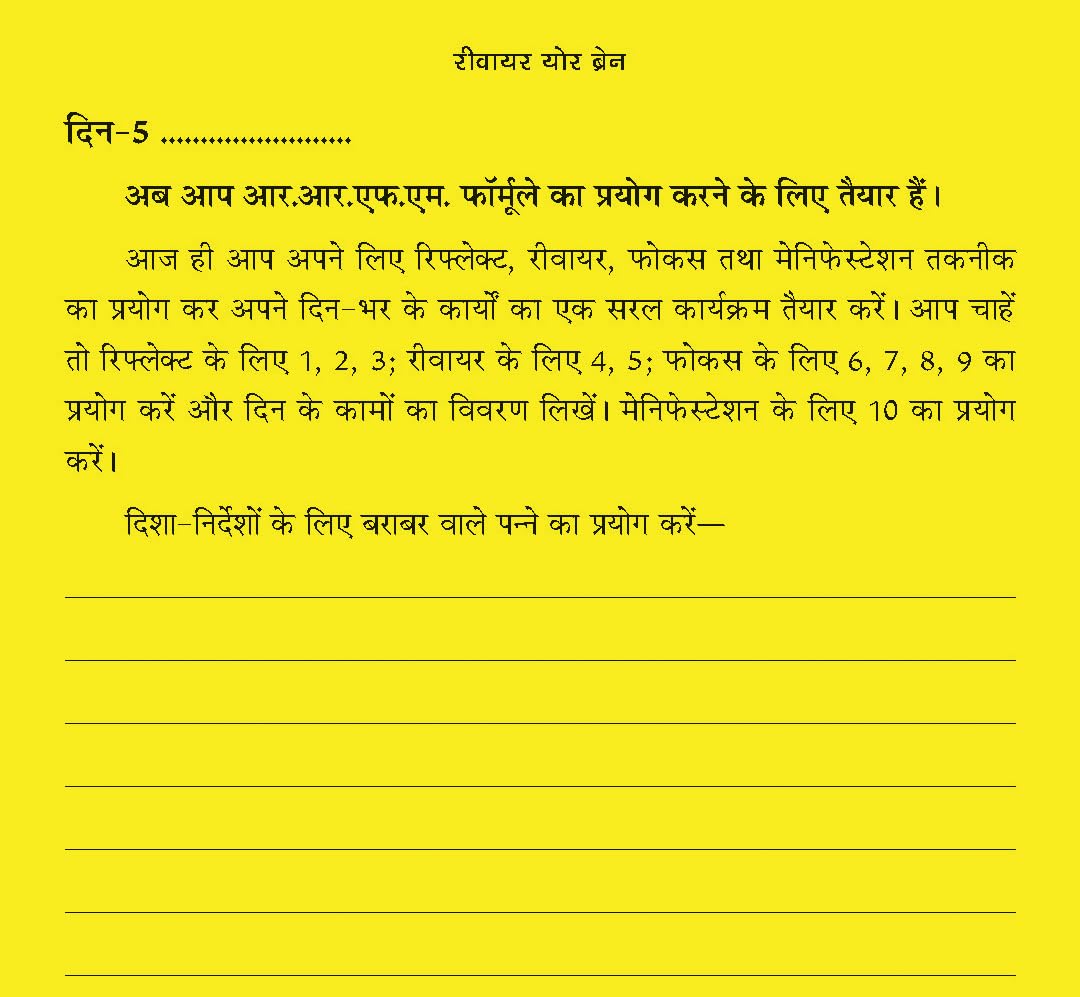 रीवायर योर ब्रेन
दिन-5 ........................
अब आप आर.आर.एफ.एम. फॉर्मूले का प्रयोग करने के लिए तैयार हैं।
आज ही आप अपने लिए रिफ्लेक्ट, रीवायर, फोकस तथा मेनिफेस्टेशन तकनीक
का प्रयोग कर अपने दिन-भर के कार्यों का एक सरल कार्यक्रम तैयार करें। आप चाहें
तो रिफ्लेक्ट के लिए 1, 2, 3; रीवायर के लिए 4, 5; फोकस के लिए 6, 7, 8, 9 का
प्रयोग करें और दिन के कामों का विवरण लिखें। मेनिफेस्टेशन के लिए 10 का प्रयोग
करें।
दिशा-निर्देशों के लिए बराबर वाले पन्ने का प्रयोग करें—